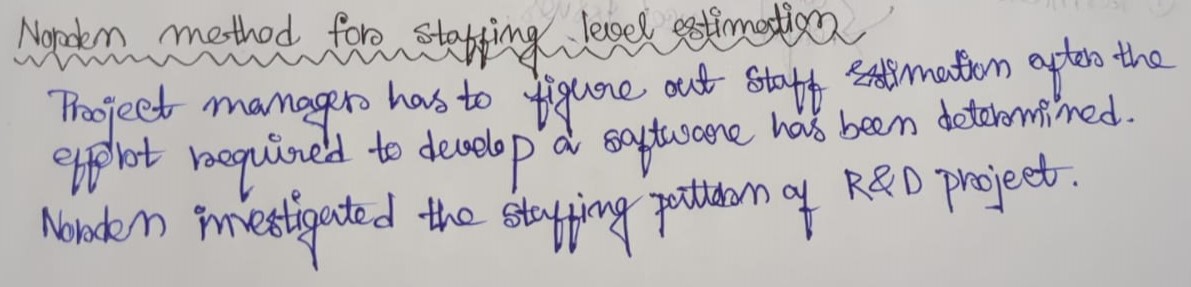 Norden method for staffing level estimation
Project manager has to figure out staff estimation after the
effort required to develop a software has been determined.
Norden investigated the staffing pattern of R&D project.